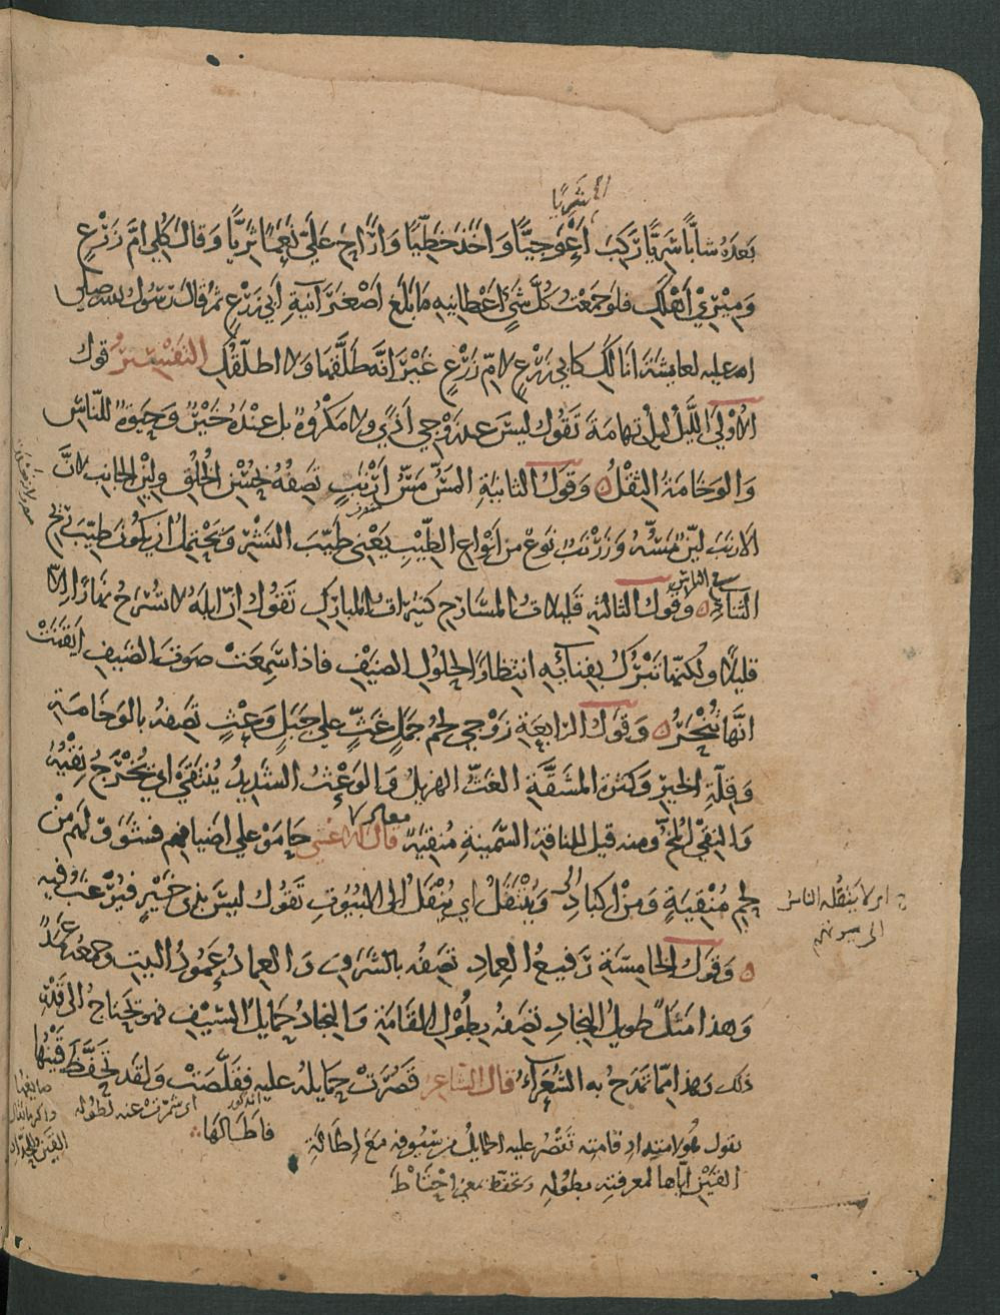 بعده شابًّا سَرِيًّا رَكِبَ اَعْوَجِيًّا وَاَخَذَ خَطِّيًّا وَاَرَاحَ عَلَيَّ نَعَمًا ثَرِيًّا وَقَالَ كُلِي اُمَّ زَرْعٍ
وَمِيْرِيْ اَهْلَكِ فلو جَمَعْتُ كُلَّ شَيْءٍ اَعْطَانِيهِ مَا بَلَغَ اَصْغَرَ آنِيَةِ اَبِي زَرْعٍ ثم قال رَسُول الله صلى
الله عليه لعايشة انا لَكِ كابي زَرْعٍ لامّ زَرْعٍ غَيْرَ انَّه طَلَّقَهَا ولا اطلّقُكِ التَّفْسِيْرُ قول
الاُوْلَى اللَّيْل ليل تهامَةَ تَقُول ليسَ عند زَوْجِي اَذًى ولا مَكْرُوهٌ بل عنْدَهُ خَيْرٌ وَحَيٰوةٌ للنَّاسِ
وَالوَخَامَةُ الثِّقْلُ وَقَوْلُ الثانيةِ المَسُّ مَسُّ اَرْنَبٍ تَصِفُهُ بِحُسْنِ الخُلُقِ ولِيْنِ الجانِبِ لانَّ
الارْنَبَ ليّنٌ مَسُّه وَزَرْنَبٌ نَوْعٌ من اَنْوَاعِ الطِّيْبِ يَعْنِي طَيِّبَ النَّشْرِ وَيَحْتَمِلُ ان يكُونَ طَيِّبَ رِيْحِ
الثناء في الناس وقولُ الثالثة قليلاتُ المسَارِحِ كثيراتُ المبارِكِ تَقُولُ اِنّ اِبِلَهُ لا تَسْرَحُ نَهَارًا اِلّا
قليلا ولكنّها تَبْرُكُ بِفِنَائِهِ انتظارًا لحُلُولِ الضيْفِ فاذا سَمِعَتْ صَوْتَ الضيفِ اَيْقَنَتْ
انَّها تُنْحَرُ وَقَوْلُ الرّابِعَةِ زَوْجِي لحْمُ جَمَلٍ غَثٍّ على جَبَلٍ وَعْثٍ تَصِفهُ بالوَخَامَةِ
وَقِلَّةِ الخيرِ وَكثرة المشَقَّةِ الغَثُّ الهزيلُ وَالوَعْثُ الشديدُ يُنتقَى اي يُخْرَجُ نِقْيُهُ
وَالنِقْيُ المُخُّ ومنه قيل للناقة السّمينةِ مُنقِيَةٌ قال الاعشى حَامَوْا على اضيافِهم فشَوَوْا لهم مِنْ
لحمِ مُنْقِيَةٍ وَمِنْ اكبادِ وَيُنْتَقَلُ اي يُنْقَلُ الى البُيُوتِ تَقُولُ ليسَ بذي خَيْرٍ فيُرْغَبُ فيه
اي لا يَنقُلُه الناس
الى بيوتهم
وَقَوْلُ الخامِسَةِ رَفيعُ العِمادِ تَصِفُه بالشَّرفِ وَالعِمادُ عَمُودُ البيت وجمعُه عَمَدٌ
وَهذا مَثَلٌ طويلُ النِجادِ تصِفُه بِطُوْلِ القَامَةِ وَالنِجادُ حَمايلُ السّيْفِ فهو يَحتاجُ الى قَدْرِ
ذلك وَهذا مِمّا تَمْدَحُ به الشُعَرَاءُ قال الشاعر قَصُرَتْ حمايلُهُ عليهِ فقلَّصَتْ وَلقد تَحَفَّظَ قَيْنُهَا
فاَطَالَهَا
اي شمّرتْ عنه لطوله
يقول هو لامتداد قامته تَقصُر عليه الحمايل من سُيُوفه مَعَ اِطالَةِ
القَيْنِ اِيّاها لمعرفته بطُولِه وتحفّظ بمعنى احتاط